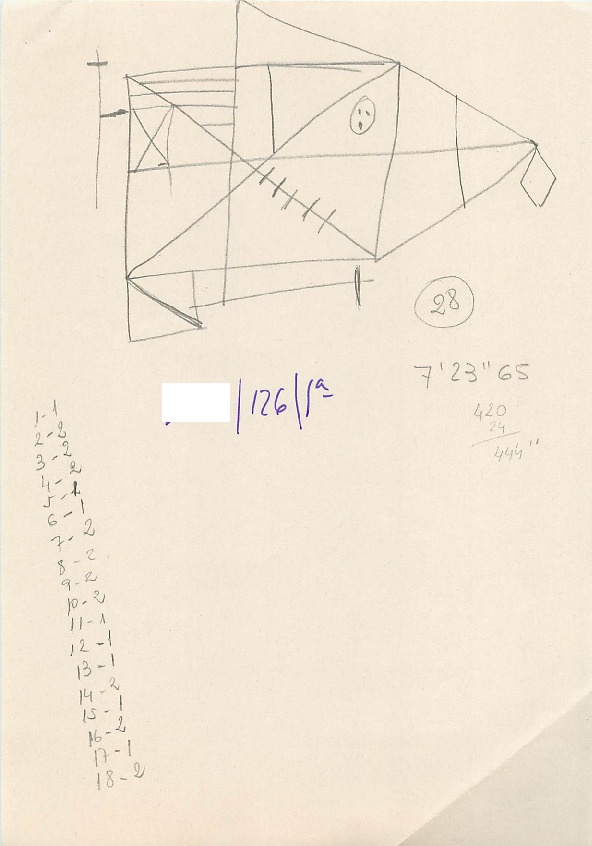 28
7'23"65
420
24
444"
/126/1ª
1-1
2-2
3-2
4-2
5-1
6-1
7-2
8-2
9-2
10-2
11-1
12-1
13-1
14-2
15-1
16-2
17-1
18-2